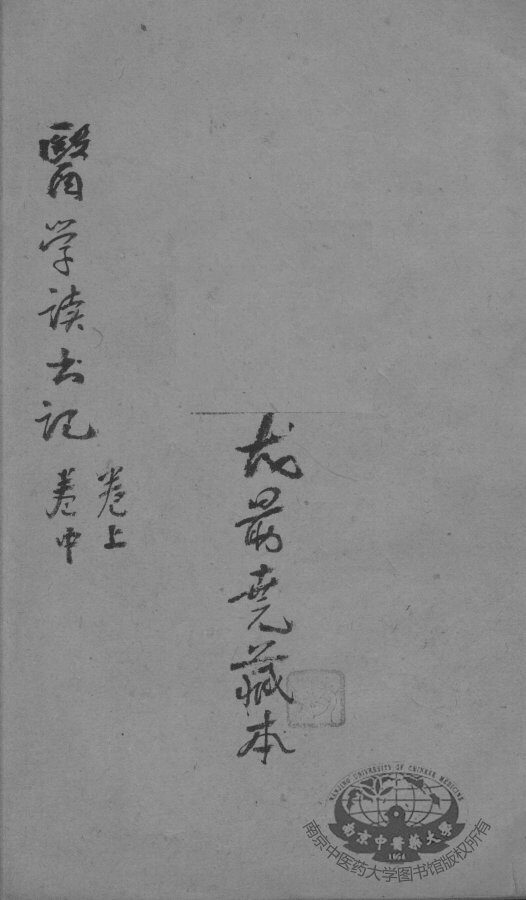 藏本
醫学读书记
卷上
卷中
NANJING UNIVERSITY OF CHINESE MEDICINE
南京中醫藥大學
1954
南京中医药大学图书馆版权所有